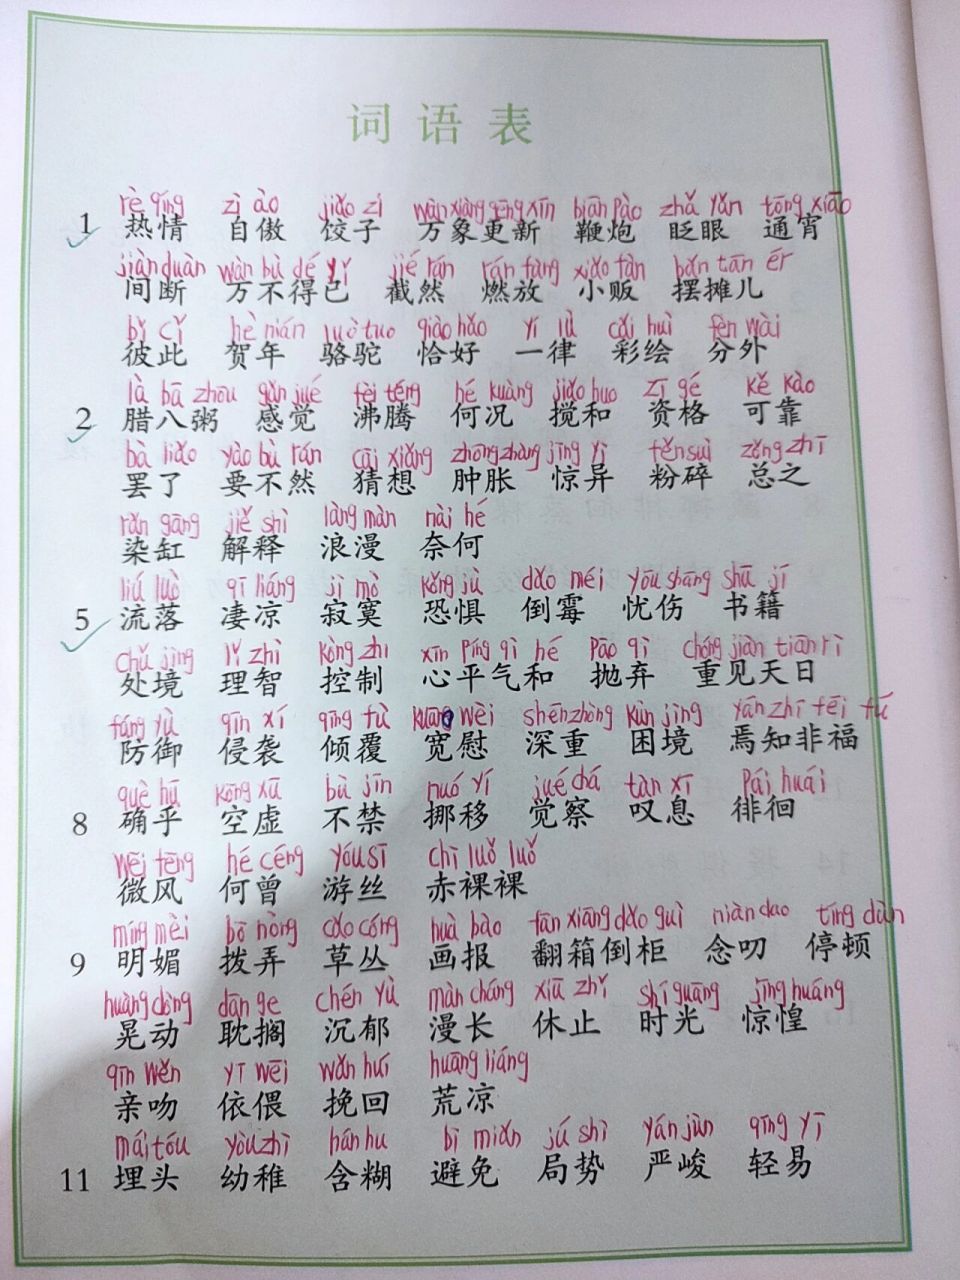 词语表
rè qíng zì ào jiǎo zi wàn xiàng gēng xīn biān pào zhǎ yǎn tōng xiāo
1 热情 自傲 饺子 万象更新 鞭炮 眨眼 通宵
jiàn duàn wàn bù dé yǐ jié rán rán fàng xiǎo fàn bǎn tān ér
间断 万不得已 截然 燃放 小贩 摆摊儿
bǐ cǐ hè nián luò tuo qiào hǎo yí lǜ cǎi huì fèn wài
彼此 贺年 骆驼 恰好 一律 彩绘 分外
là bā zhōu gǎn jué fèi téng hé kuàng jiǎo huo zī gé kě kào
2 腊八粥 感觉 沸腾 何况 搅和 资格 可靠
bà liǎo yào bù rán cāi xiǎng zhǒng zhàng jīng yì fěn suì zǒng zhī
罢了 要不然 猜想 肿胀 惊异 粉碎 总之
rǎn gāng jiě shì làng màn nài hé
染缸 解释 浪漫 奈何
liú luò qī liáng jì mò kǒng jù dǎo méi yōu shāng shū jí
5 流落 凄凉 寂寞 恐惧 倒霉 忧伤 书籍
chǔ jìng lǐ zhì kòng zhì xīn píng qì hé pāo qì chóng jiàn tiān rì
处境 理智 控制 心平气和 抛弃 重见天日
fáng yù qīn xí qīng fù kuān wèi shēn zhòng kùn jìng yān zhī fēi fú
防御 侵袭 倾覆 宽慰 深重 困境 焉知非福
què hū kōng xū bù jīn nuó yí jué chá tàn xī pái huái
8 确乎 空虚 不禁 挪移 觉察 叹息 徘徊
wēi fēng hé céng yóu sī chì luǒ luǒ
微风 何曾 游丝 赤裸裸
míng mèi bō nòng cǎo cóng huà bào fān xiāng dǎo guì niàn dao tíng dùn
9 明媚 拨弄 草丛 画报 翻箱倒柜 念叨 停顿
huàng dòng dān ge chén yù màn cháng xiū zhǐ shí guāng jīng huáng
晃动 耽搁 沉郁 漫长 休止 时光 惊惶
qīn wěn yī wēi wǎn huí huāng liáng
亲吻 依偎 挽回 荒凉
mái tóu yòu zhì hán hu bì miǎn jú shì yán jùn qīng yì
11 埋头 幼稚 含糊 避免 局势 严峻 轻易